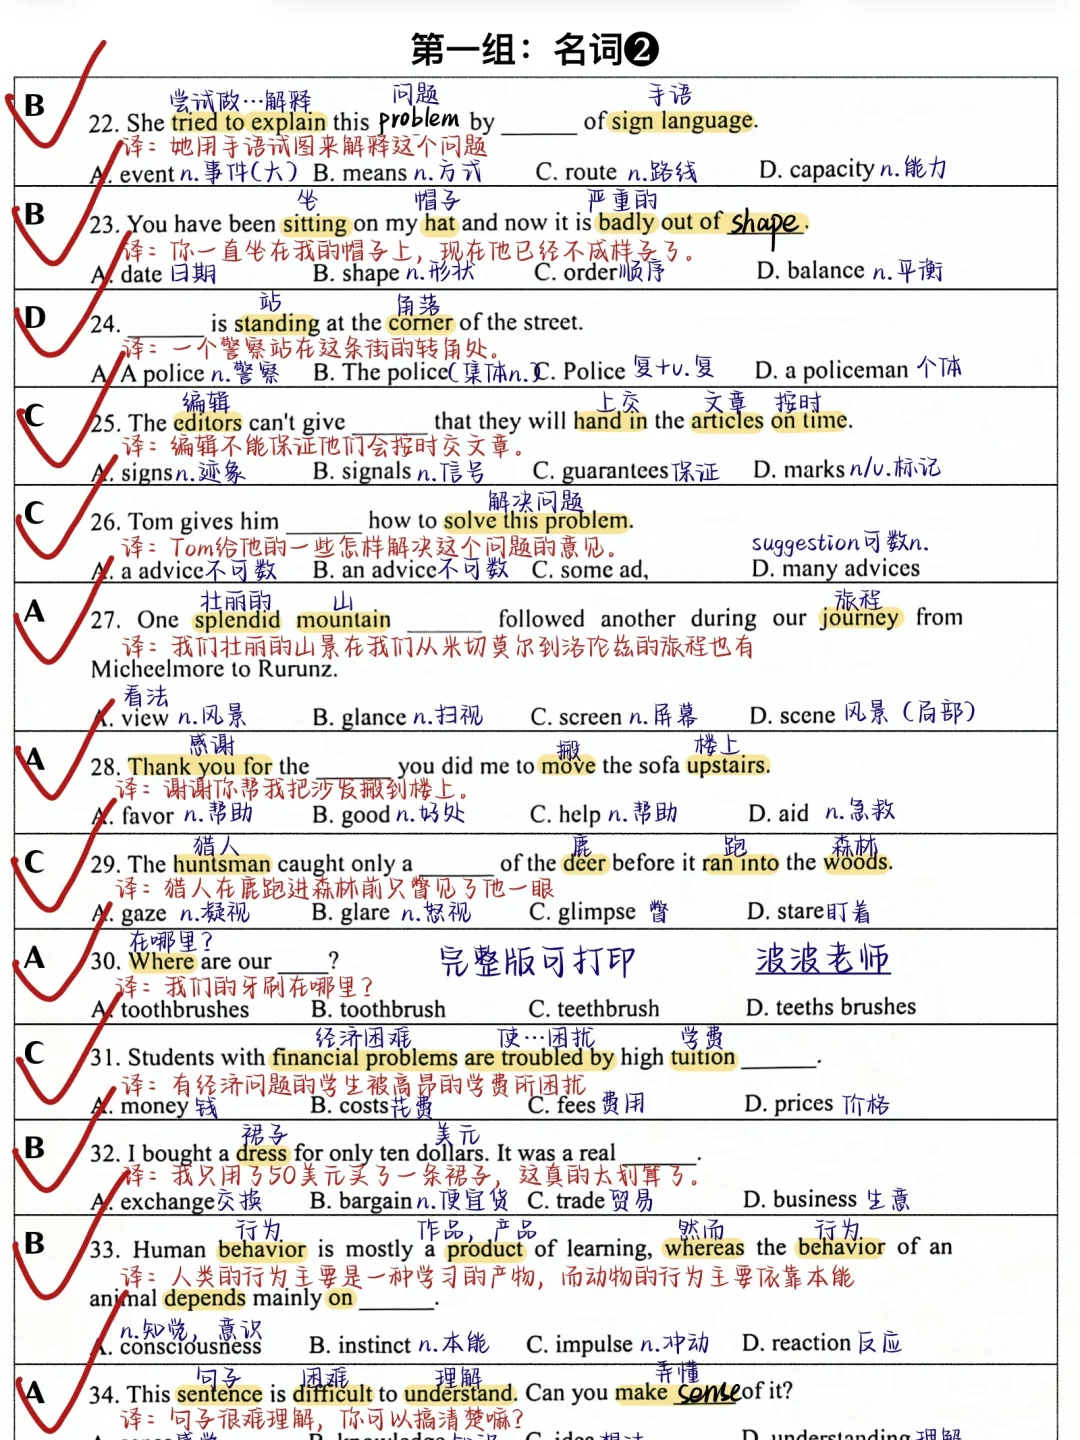 第一组：名词❷
B
尝试做…解释 问题 手语
22. She tried to explain this problem by ______ of sign language.
译：她用手语试图来解释这个问题
A. event n.事件(大) B. means n.方式 C. route n.路线 D. capacity n.能力
B
坐 帽子 严重的
23. You have been sitting on my hat and now it is badly out of shape.
译：你一直坐在我的帽子上，现在他已经不成样子了。
A. date 日期 B. shape n.形状 C. order顺序 D. balance n.平衡
D
站 角落
24. ______ is standing at the corner of the street.
译：一个警察站在这条街的转角处。
A. A police n.警察 B. The police(集体n.) C. Police 复+v.复 D. a policeman 个体
C
编辑 上交 文章 按时
25. The editors can't give ______ that they will hand in the articles on time.
译：编辑不能保证他们会按时交文章。
A. signs n.迹象 B. signals n.信号 C. guarantees保证 D. marks n/v.标记
C
解决问题
26. Tom gives him ______ how to solve this problem.
译：Tom给他的一些怎样解决这个问题的意见。 suggestion可数n.
A. a advice不可数 B. an advice不可数 C. some ad, D. many advices
A
壮丽的 山 旅程
27. One splendid mountain ______ followed another during our journey from
译：我们壮丽的山景在我们从米切莫尔到洛伦兹的旅程也有
Micheelmore to Rurunz.
看法
A. view n.风景 B. glance n.扫视 C. screen n.屏幕 D. scene 风景（局部）
A
感谢 搬 楼上
28. Thank you for the ______ you did me to move the sofa upstairs.
译：谢谢你帮我把沙发搬到楼上。
A. favor n.帮助 B. good n.好处 C. help n.帮助 D. aid n.急救
C
猎人 鹿 跑 森林
29. The huntsman caught only a ______ of the deer before it ran into the woods.
译：猎人在鹿跑进森林前只瞥见了他一眼
A. gaze n.凝视 B. glare n.怒视 C. glimpse 瞥 D. stare盯着
A
在哪里？
30. Where are our ____? 完整版可打印 波波老师
译：我们的牙刷在哪里？
A. toothbrushes B. toothbrush C. teethbrush D. teeths brushes
C
经济困难 使…困扰 学费
31. Students with financial problems are troubled by high tuition ______.
译：有经济问题的学生被高昂的学费所困扰
A. money 钱 B. costs花费 C. fees 费用 D. prices 价格
B
裙子 美元
32. I bought a dress for only ten dollars. It was a real ______.
译：我只用了50美元买了一条裙子，这真的太划算了。
A. exchange交换 B. bargain n.便宜货 C. trade 贸易 D. business 生意
B
行为 作品，产品 然而 行为
33. Human behavior is mostly a product of learning, whereas the behavior of an
译：人类的行为主要是一种学习的产物，而动物的行为主要依靠本能
animal depends mainly on ______.
n.知觉，意识
A. consciousness B. instinct n.本能 C. impulse n.冲动 D. reaction 反应
A
句子 困难 理解 弄懂
34. This sentence is difficult to understand. Can you make sense of it?
译：句子很难理解，你可以搞清楚嘛？